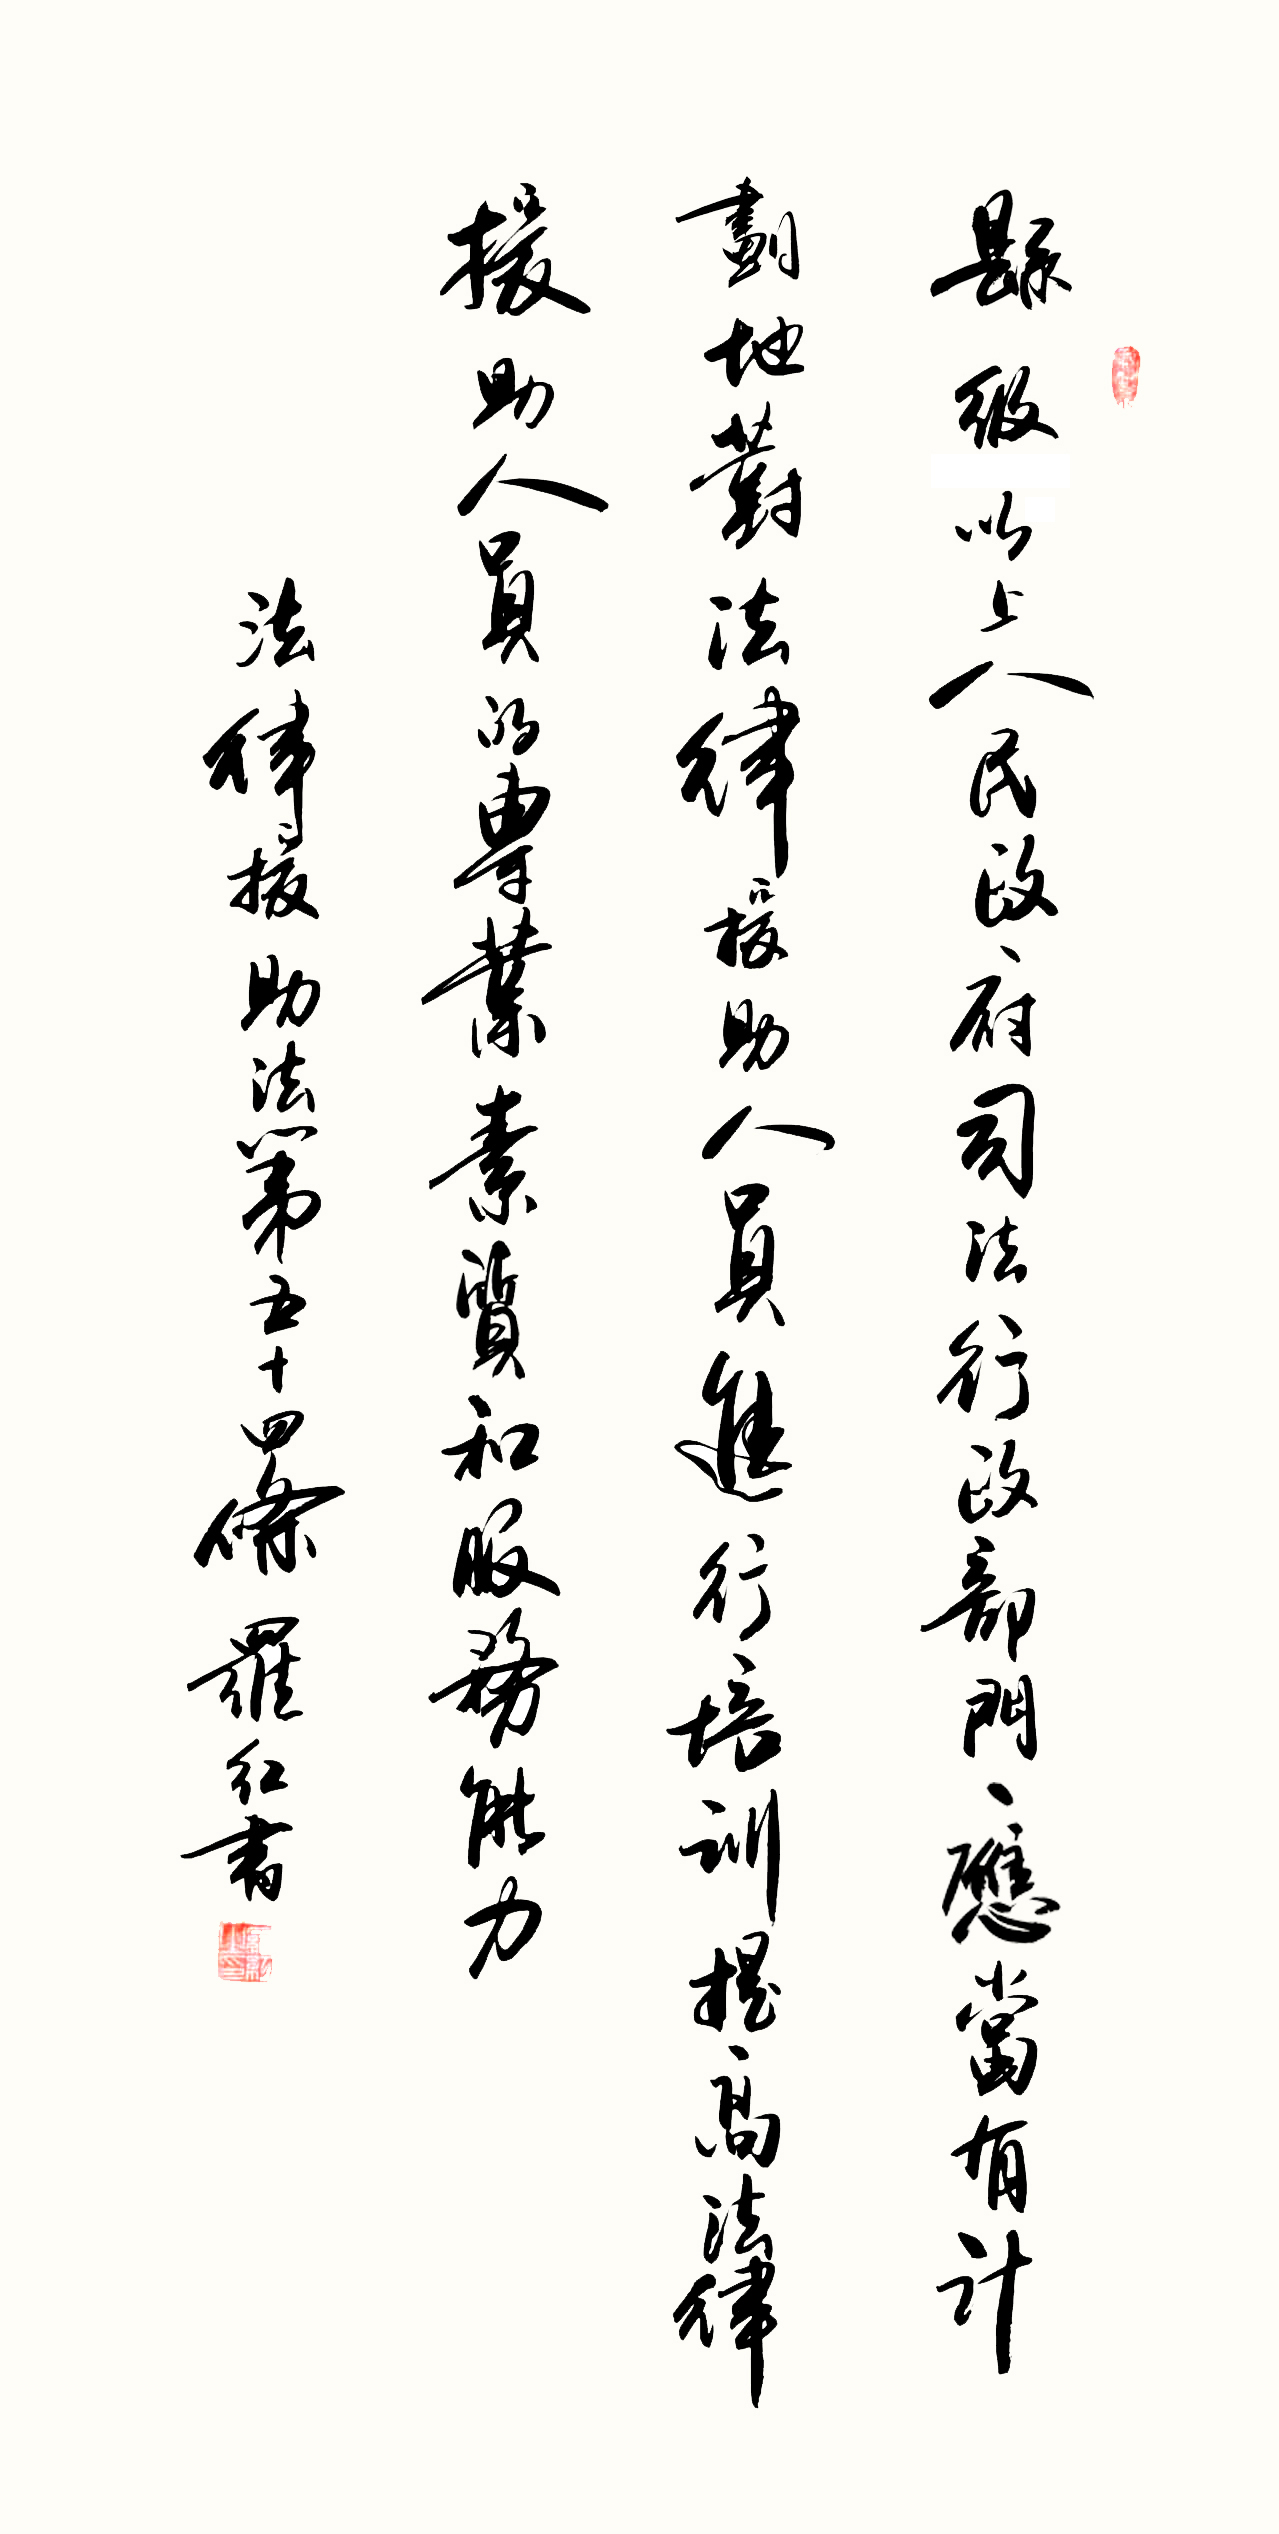 縣級以上人民政府司法行政部門、應當有計
劃地對法律援助人員進行培訓提高法律
援助人員的專業素質和服務能力
法律援助法第五十四條 羅紅書